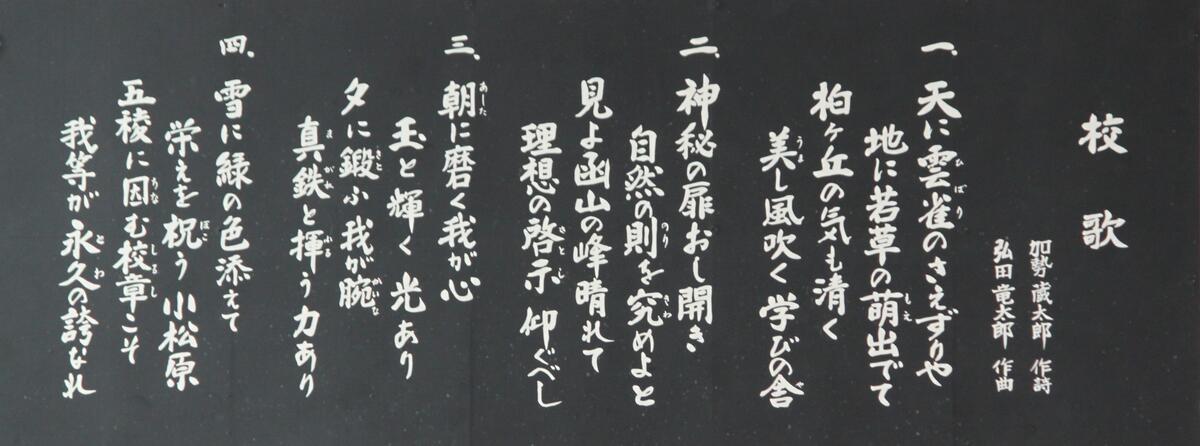 校歌
加勢 蔵太郎 作詩
弘田 竜太郎 作曲
一、天に雲雀のさえずりや
地に若草の萌出でて
柏ヶ丘の気も清く
美し風吹く学びの舎
二、神秘の扉おし開き
自然の則を究めよと
見よ函山の峰晴れて
理想の啓示仰ぐべし
三、朝に磨く我が心
玉と輝く光あり
夕に鍛ふ我が腕
真鉄と揮う力あり
四、雪に緑の色添えて
栄えを祝う小松原
五稜に因む校章こそ
我等が永久の誇なれ